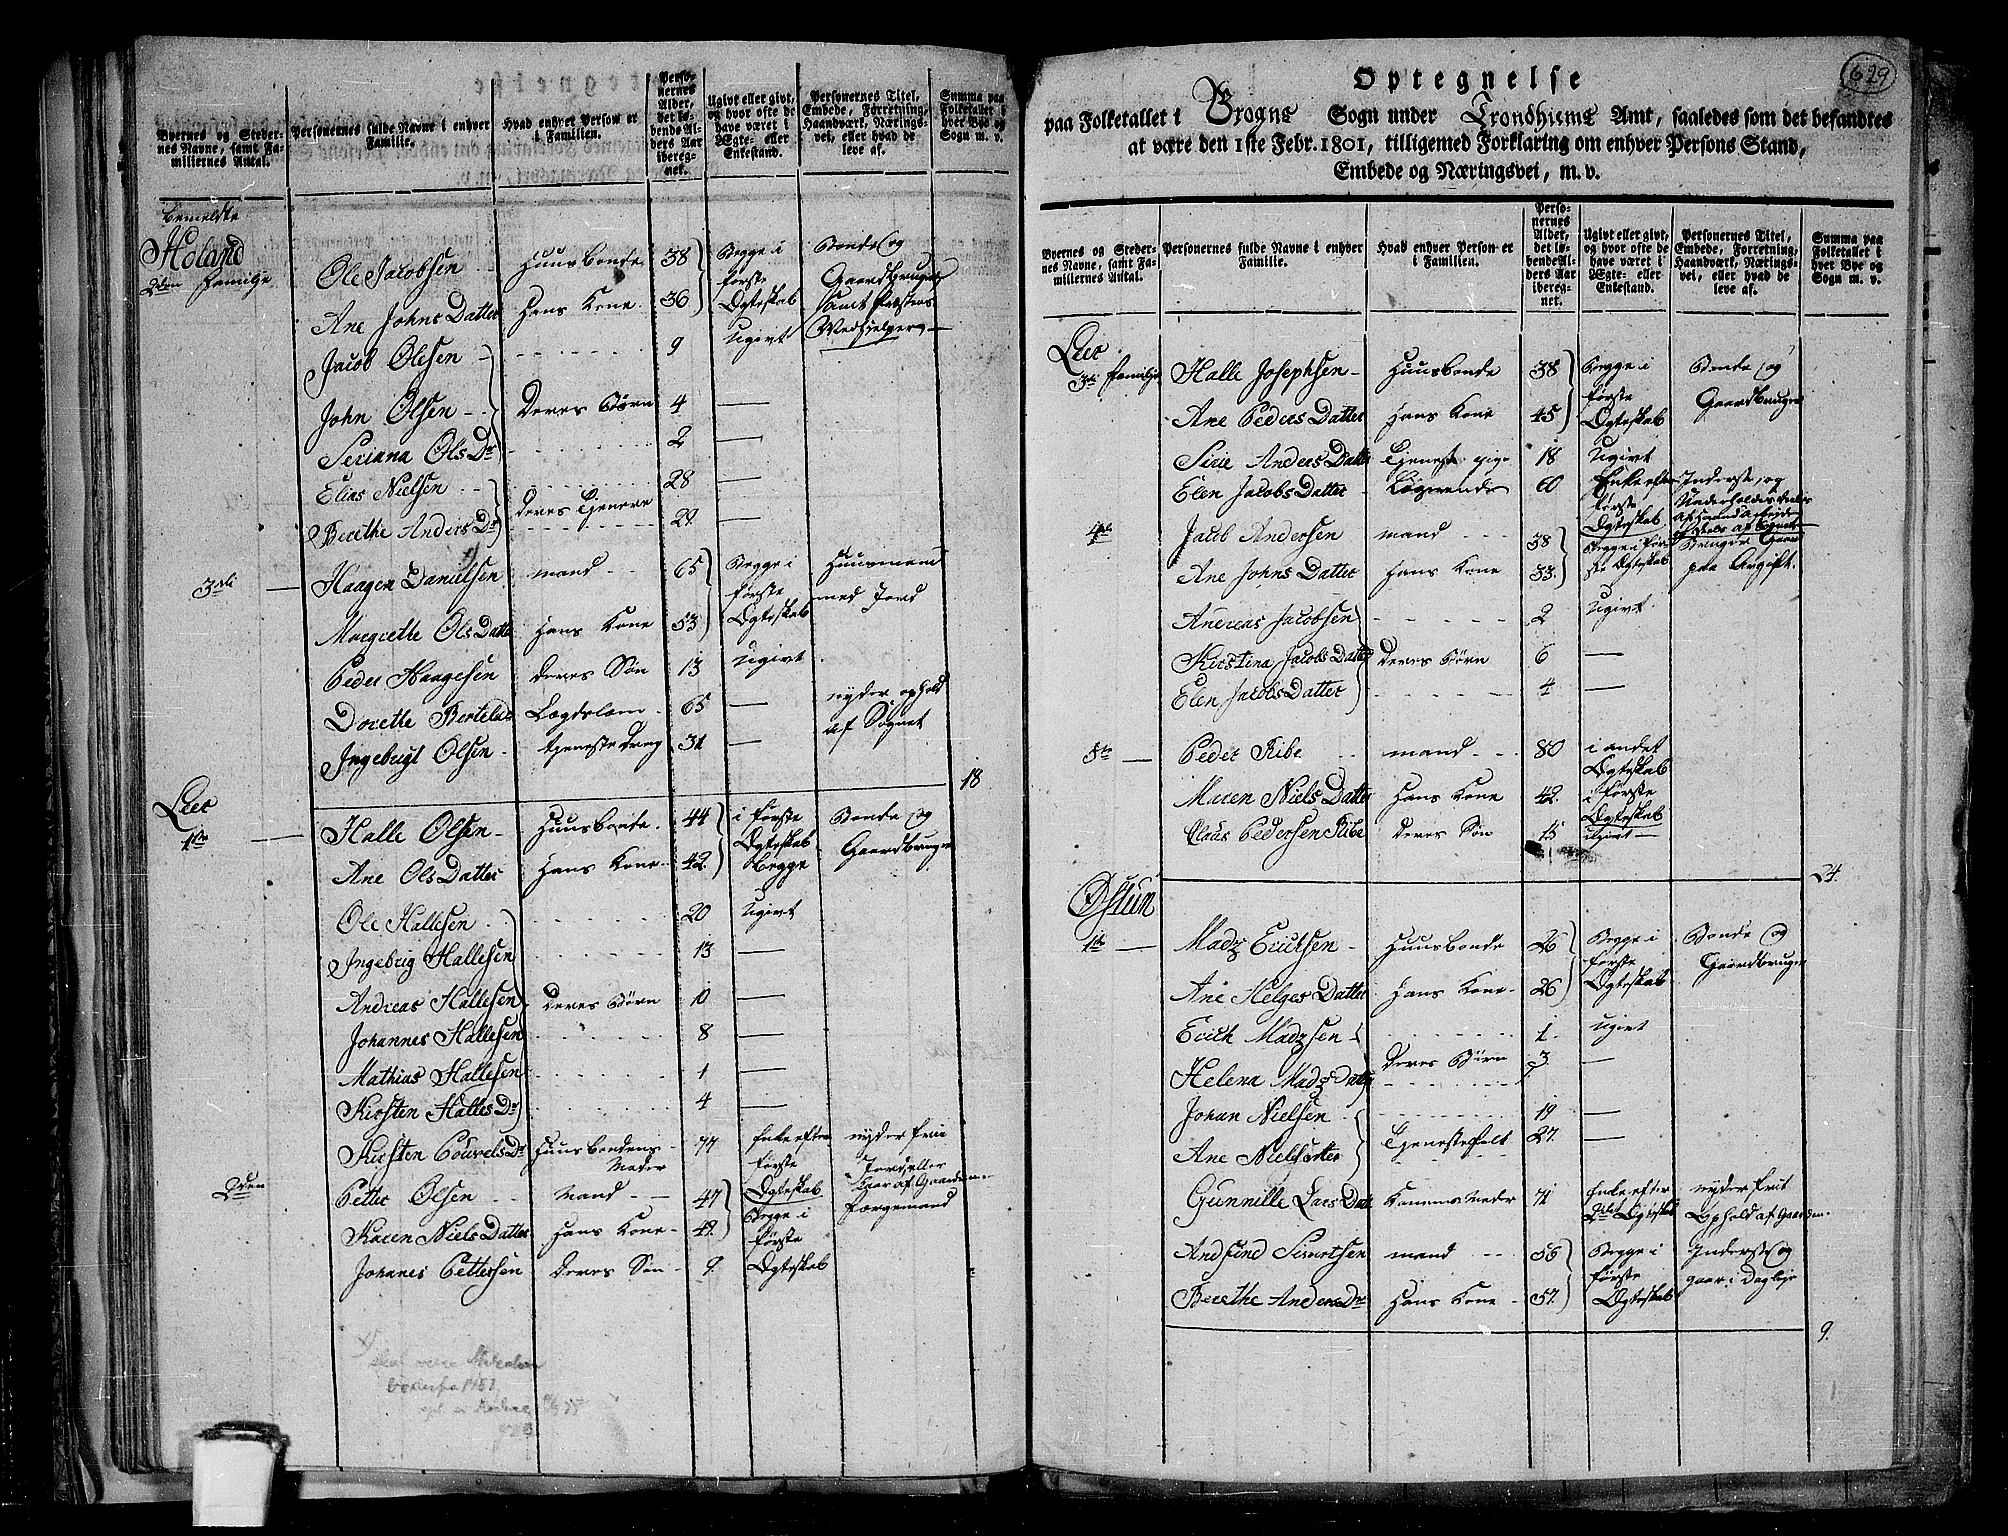 Byernes og Stedernes Navne, samt Familiernes Antal. | Personernes fulde Navne i enhver Familie. | Hvad enhver Person er i Familien. | Personernes Alder, det løbende Alders Aar iberegnet. | Ugivt eller givt, og hvor ofte de have været i Ægte- eller Enkestand. | Personernes Titel, Embede, Forretning, Haandværk, Næringsvei, eller hvad de leve af. | Summa paa Folketallet i hver Bye og Sogn m. v.
bemeldte
Høland
2den Familje
Ole Jacobsen Huusbonde 38 Begge i første Ægteskab Bonde og Gaardbruger samt Præstens Medhjelper
Ane Johns Datter Hans Kone 36
Jacob Olesen 9 Ugivt
John Olsen Deres Børn 4 —
Seriana Ols Dr 2 —
Elias Nielsen 28 —
Berethe Anders Dr Deres Tjenere 29 —
3die
Haagen Danielsen mand 65 Begge i første Ægteskab Huusmand med Jord
Margrethe Ols Datter Hans Kone 53
Peder Haagesen Deres Søn 13 Ugivt
Dorethe Bertels Lægdslem 65 — nyder ophold af Sognet
Ingebrigt Olsen tjeneste Dreng 31 —
18
Leer
1ste
Halle Olsen Huusbonde 44 i første Ægteskab begge Bonde og Gaardbruger
Ane Ols Datter Hans Kone 42
Ole Hallesen 20 Ugivt
Ingebrig Hallesen 13 —
Andreas Hallesen Deres Børn 10 —
Johannes Hallesen 8 —
Mathias Hallesen 1 —
Kirsten Halles Dr 4 —
Kirsten Pouvels Dr Huusbondens Moder 77 Enke efter første Ægteskab nyder frie af Gaarden
2den
Petter Olsen Mand 47 Begge i første Ægteskab Færgemand
Karen Niels Datter Hans Kone 49
Johanes Pettersen Deres Søn 9
x) skal være
629
Optegnelse
paa Folketallet i Sogn under Trondhiems Amt, saaledes som det befandtes
at være den 1ste Febr. 1801, tilligemed Forklaring om enhver Persons Stand,
Embede og Næringsvei, m. v.
Byernes og Stedernes Navne, samt Familiernes Antal. | Personernes fulde Navne i enhver Familie. | Hvad enhver Person er i Familien. | Personernes Alder, det løbende Alders Aar iberegnet. | Ugivt eller givt, og hvor ofte de have været i Ægte- eller Enkestand. | Personernes Titel, Embede, Forretning, Haandværk, Næringsvei, eller hvad de leve af. | Summa paa Folketallet i hver Bye og Sogn m. v.
Leer
3die Familje
Halle Josephsen Huusbonde 38 Begge i første Ægteskab Bonde og Gaardbruger
Ane Peders Datter Hans Kone 45
Sirie Anders Datter Tjeneste pige 18 Ugivt
Elen Jacobs Datter Logerende 60 Enke efter første Ægteskab Inderst, og Underholdes deels af Haandarbeide deels af Sognet
4de
Jacob Andersen mand 38 Begge i første Ægteskab Bruger Gaard paa Avgift.
Ane Johns Datter Hans Kone 33
Andreas Jacobsen 2 Ugivt
Kirstina Jacobs Datter Deres Børn 6 —
Elen Jacobs Datter 4 —
5te
Peder Ribe mand 80 i andet Ægteskab
Maren Niels Datter Hans Kone 42 i første Ægteskab
Claus Pedersen Ribe Deres Søn 15 Ugivt
24
Østum
1ste
Madz Erichsen Huusbonde 26 Begge i første Ægteskab Bonde og Gaardbruger
Ane Helges Datter Hans Kone 26
Erich Madzsen 1 Ugivt
Helena Madz Datter Deres Børn 3 —
Johan Nielsen 19 —
Ane Nielsdtter Tjenestefolk 27 —
Gunnille Lars Datt Konens Moder 71 Enke efter 2det Ægteskab nyder frit Ophold af Gaarden
Andfind Sivertsen mand 56 Begge i første Ægteskab Inderst og gaar i Dagleje
Berethe Anders Dr Hans Kone 57
9.